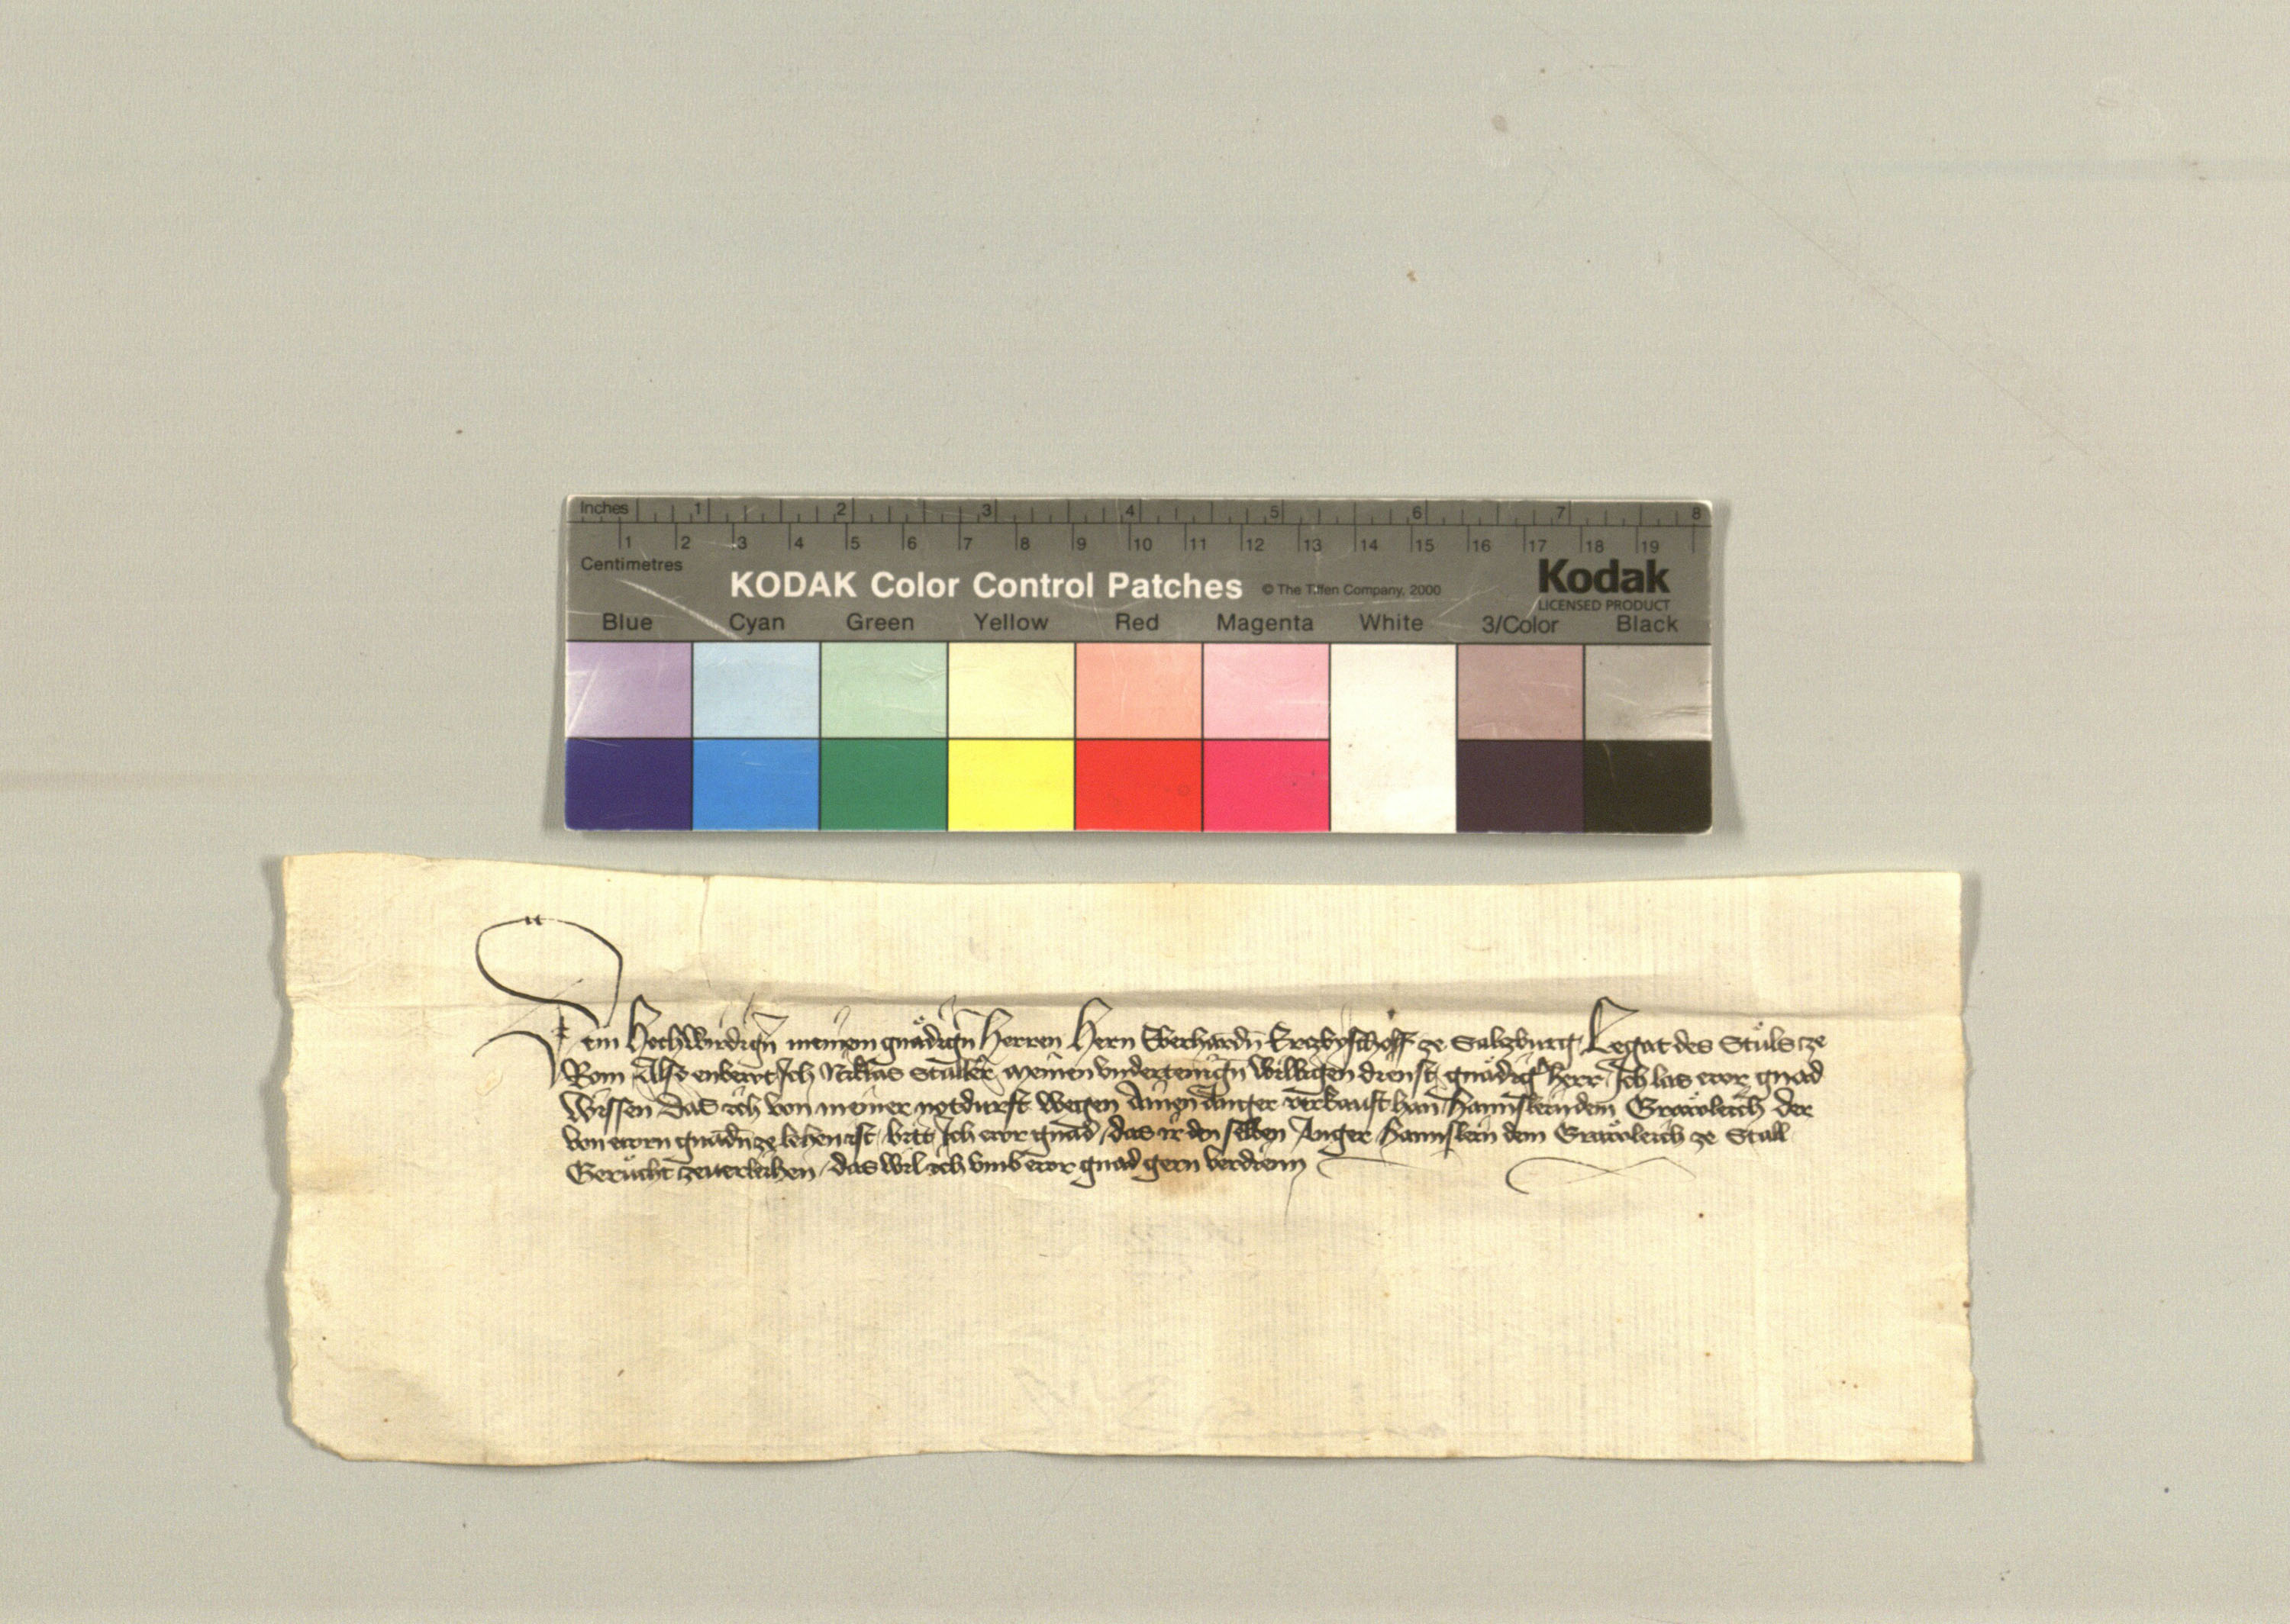 Inches 1 2 3 4 5 6 7 8
1 2 3 4 5 6 7 8 9 10 11 12 13 14 15 16 17 18 19
Centimetres
KODAK Color Control Patches © The Tiffen Company, 2000 Kodak
LICENSED PRODUCT
Blue Cyan Green Yellow Red Magenta White 3/Color Black
Dem Hochwirdign̄ meinem gnädign̄ Herren Hern Eberhardn̄ Erczbyscholf ze Salzburg Legat des Stůls cze
Rom Also enbewt Ich Niklas Staller meinen vndertenign̄ willigen dienst gnädiger herr Ich las ewr gnad
wissen das ich von meiner notdurft wegen Ainen Anger verkauft han Hannslein dem der
von ewrn gnadn̄ ze lehen ist bitt Ich ewr gnad das ir den selben Anger Hannslein dem ze Stall
Gerůcht zeuerleihen das wil ich vmb ewr gnad gern verdienn